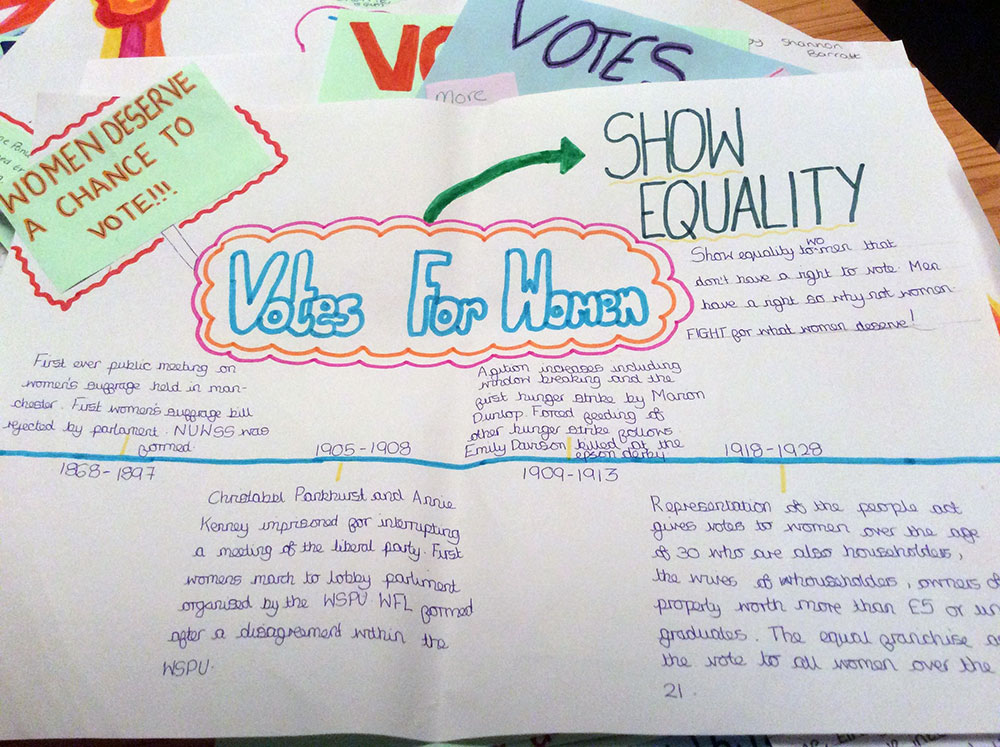 VO
VOTES
by Shannon
Barratt
More
WOMEN DESERVE
A CHANCE TO
VOTE!!!
SHOW
EQUALITY
Votes For Women
Show equality to women that
don't have a right to vote. Men
have a right so why not women.
FIGHT for what women deserve!
First ever public meeting on
women's suffrage held in man-
chester. First women's suffrage bill
rejected by parliament. NUWSS was
formed
1868-1897
1905-1908
Christabel Pankhurst and Annie
Kenney imprisoned for interrupting
a meeting of the liberal party. First
womens march to lobby parliment
organised by the WSPU. WFL formed
after a disagreement within the
WSPU.
Agition increases including
window breaking and the
first hunger strike by Marion
Dunlop. Forced feeding of
other hunger strike follows
Emily Davison killed at the
epson derby
1909-1913
1918-1928
Representation of the people act
gives votes to women over the age
of 30 who are also householders,
the wives of whouseholders, owners of
property worth more than £5 or un
graduates. The equal franchise a
the vote to all women over the
21.